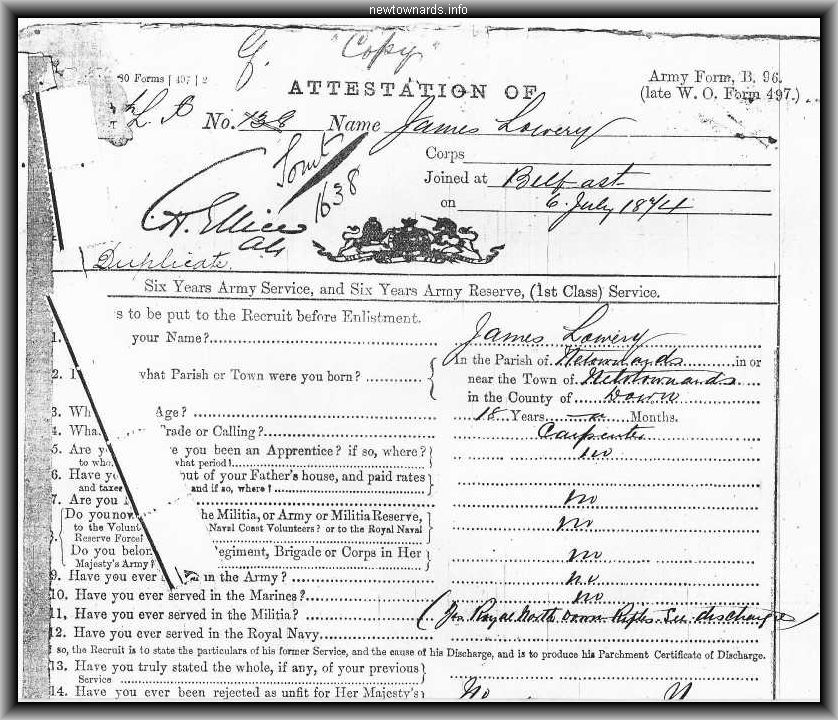 newtownards.info
"Copy"
80 Forms [ 497 ] 2
Army Form, B. 96.
(late W. O. Form 497.)
ATTESTATION OF
No. 138 Name James Lowery
Corps
1638
Joined at Belfast
on 6 July 1874
Duplicate
Six Years Army Service, and Six Years Army Reserve, (1st Class) Service.
s to be put to the Recruit before Enlistment.
1. your Name? James Lowery
In the Parish of Netownards in or
2. what Parish or Town were you born? near the Town of Netotownards
in the County of Down
3. Wh Age? 18 Years Months.
4. Wha Trade or Calling? Carpenter
5. Are y e you been an Apprentice? if so, where? no
to who what period?
6. Have yo out of your Father's house, and paid rates
and taxes and if so, where?
7. Are you no
Do you now the Militia, or Army or Militia Reserve, no
to the Volunt Naval Coast Volunteers? or to the Royal Naval
8. Reserve Force?
Do you belon Regiment, Brigade or Corps in Her no
Majesty's Army?
9. Have you ever in the Army? no
10. Have you ever served in the Marines? no
11, Have you ever served in the Militia? Royal North Down Rifles. See discharge
12. Have you ever served in the Royal Navy
f so, the Recruit is to state the particulars of his former Service, and the cause of his Discharge, and is to produce his Parchment Certificate of Discharge.
13. Have you truly stated the whole, if any, of your previous
Service
14. Have you ever been rejected as unfit for Her Majesty's No